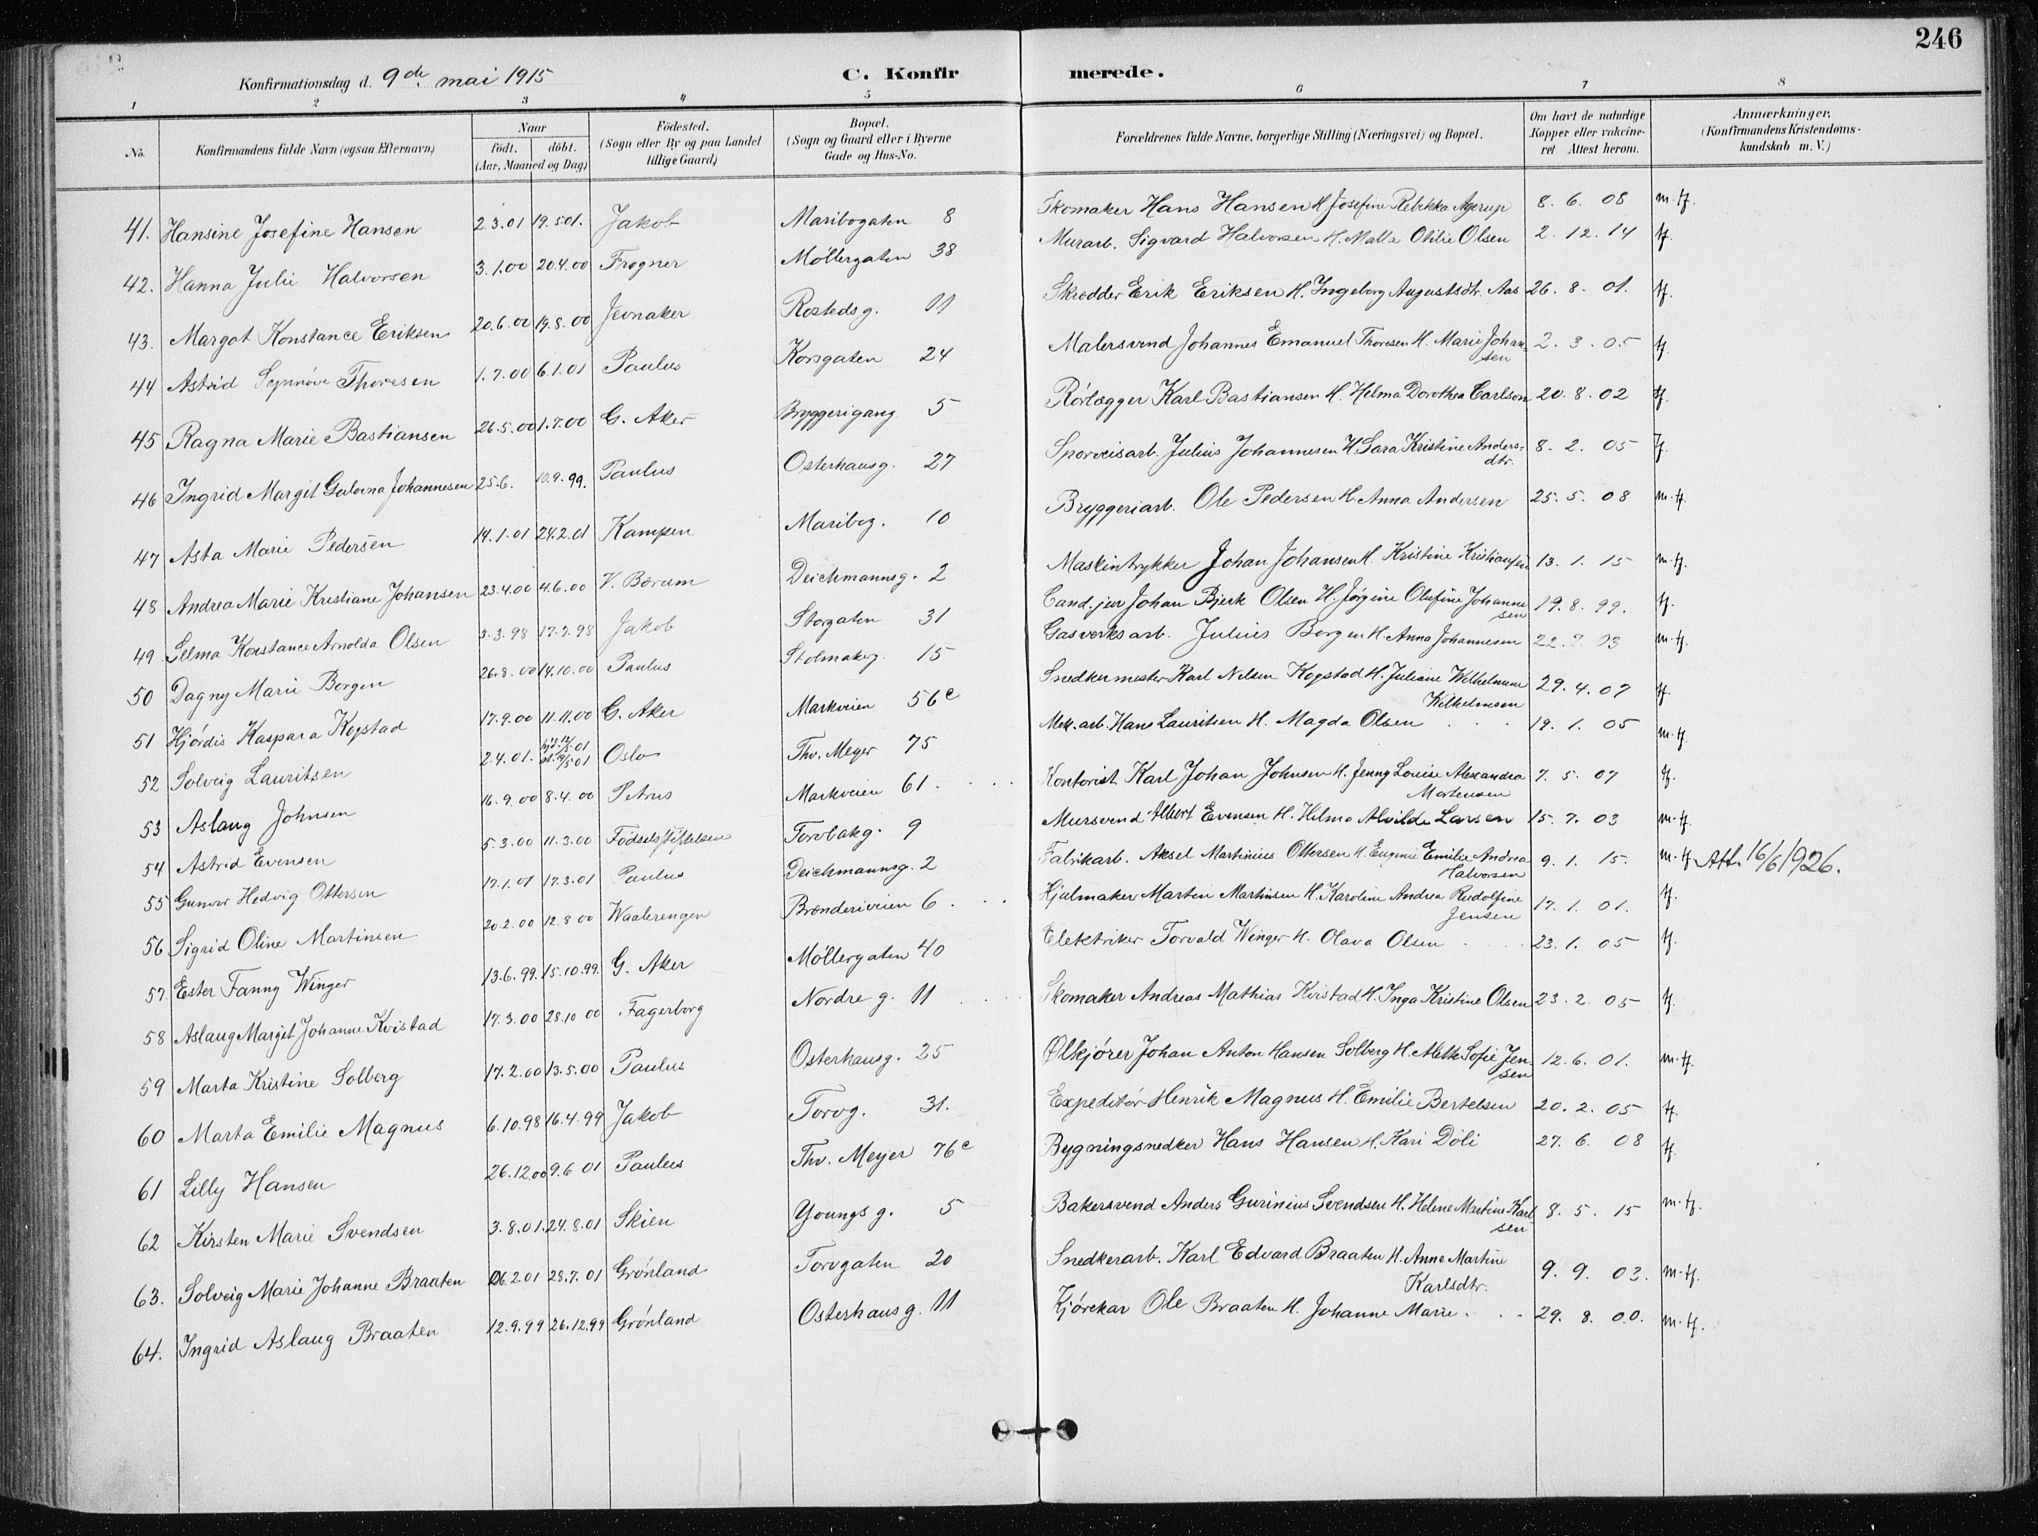 246
Konfirmationsdag d. 9de mai 1915 C. Konfirmerede.
1 2 3 4 5 6 7 8
No. Konfirmandens fulde Navn (ogsaa Efternavn) Naar födt. döbt. (Aar, Maaned og Dag) Födested. (Sogn eller By og paa Landet tillige Gaard) Bopæl. (Sogn og Gaard eller i Byerne Gade og Hus-No. Forældrenes fulde Navne, borgerlige Stilling (Næringsvei) og Bopæl. Om havt de naturlige Kopper eller vaccineret Attest herom. Anmærkninger. (Konfirmandens Kristendomskundskab m. V.)
41. Hansine Josefine Hansen 2.3.01 19.5.01. Jakob Maribogaten 8 Skomaker Hans Hansen H. Josefine Rebekka Agerup 8. 6. 08 m.tf.
42. Hanna Julie Halvorsen 3.1.00 20.4.00 Frogner Möllergaten 38 Murarb. Sigvard Halvorsen H. Malla Otilie Olsen 2. 12. 14 tf.
43. Margot Konstance Eriksen 20.6.00 19.8.00 Jevnaker Rostedsg. 11 Skrædder Erik Eriksen H. Ingeborg Augustsdtr. Aas 26. 8. 01. tf.
44 Astrid Synnöve Thoresen 1.7.00 6.1.01 Paulus Korsgaten 24 Malersvend Johannes Emanuel Thoresen H. Marie Johansen 2. 3. 05 tf.
45 Ragna Marie Bastiansen 26.5.00 1.7.00 G. Aker Bryggerigang 5 Rørlægger Karl Bastiansen H. Helma Dorothea Carlson 20. 8. 02 tf.
46 Ingrid Margit Gulovna Johannesen 25.6. 10.9.99. Paulus Osterhausg. 27 Sporveisarb. Julius Johannesen H. Sara Kristine Andersdtr. 8. 2. 05 tf.
47 Asta Marie Pedersen 14.1.01 24.2.01 Kampen Maribog. 10 Bryggeriarb. Ole Pedersen H. Anna Andersen 25. 5. 08 m.tf.
48 Andrea Marie Kristiane Johansen 23.4.00 4.6.00 V. Bærum Deichmannsg. 2 Maskintrykker Johan Johansen H. Kristine Kristiansen 13. 1. 15 m.tf.
49 Selma Konstance Arnolda Olsen 3.3.98 17.7.98 Jakob Storgaten 31 Cand. jur Johan Bjerk Olsen H. Jørgine Olufine Johannesen 19. 8. 99. tf.
50 Dagny Marie Borgen 26.8.00 14.10.00 Paulus Stolmakerg. 15 Gasverksarb. Julius Borgen H. Anna Johannesen 22. 7. 03 m.tf.
51 Hjördis Kaspara Kogstad 17.9.00 11.11.00 G. Aker Markveien 56c Snedkermester Karl Nelsen Kogstad H. Juliane Wilhelmine Wilhelmsen 29. 4. 07 tf.
52 Solveig Lauritsen 2.4.01. Oslo Thv. Meyer 75 Mek. arb. Hans Lauritsen H. Magda Olsen 19. 1. 05 m.tf.
53 Aslaug Johnsen 16.9.00 8.4.00 Petrus Markveien 61. Kontorist Karl Johan Johnsen H. Jenny Louise Alexandra Mortensen 7. 5. 07 tf.
54 Astrid Evensen 5.3.00 11.3.00 Födselsstiftelsen Torvbakg. 9 Mursvend Albert Evensen H. Helma Alvilde Larsen 15. 7. 03 m.tf.
55 Gunvor Hedvig Ottersen 17.1.01 17.3.01 Paulus Deichmannsg. 2 Fabrikarb. Aksel Martinius Ottersen H. Eugenie Emilie Andrea Halvorsen 9. 1. 15. m.tf Att. 16/6 1926.
56 Sigrid Oline Martinsen 20.2.00 12.8.00 Waalerengen Brænderiveien 6 Hjulmaker Martin Martinsen H. Karoline Andrea Rudolfine Jensen 17. 1. 01. tf.
57. Ester Fanny Winger 13.6.99. 15.10.99. G. Aker Möllergaten 40 Elektriker Torvald Winger H. Olava Olsen 23. 1. 05 tf.
58 Aslaug Margit Johanne Kvistad 17.3.00 28.10 00 Fagerborg Nordre g. 11 Skomaker Andreas Mathias Kvistad H. Inga Kristine Olsen 23. 2. 05 tf.
59 Marta Kristine Solberg 17.2.00 13.5.00 Paulus Osterhausg. 25 Ølkjører Johan Anton Hansen Solberg H. Mette Sofie Jensen 12. 6. 01. m.tf.
60 Marta Emilie Magnus 6.10.98 16.4.99 Jakob Torvg. 31. Expeditør Henrik Magnus H. Emilie Bertelsen 20. 2. 05 tf.
61 Lilly Hansen 26.12.00 9.6 01 Paulus Thv. Meyer 76c Bygningsnedker Hans Hansen H. Kari Döli 27. 6. 08 tf.
62 Kirsten Marie Svendsen 3.8.01. 24.8.01 Skien Youngs g. 5 Bakersvend Anders Gurinius Svendsen H. Helene Martine Karlsen 8. 5. 15 m.tf.
63. Solveig Marie Johanne Braaten 6.2.01 28.7.01 Grønland Torvgaten 20 Snedkerarb. Karl Edvard Braaten H. Anne Martine Karlsdtr. 9. 9. 03. m.tf.
64. Ingrid Aslaug Braaten 12.9.99 26.12.99 Grønland Osterhausg. 11 Kjørekar Ole Braaten H. Johanne Marie 29. 8. 00. m.tf.